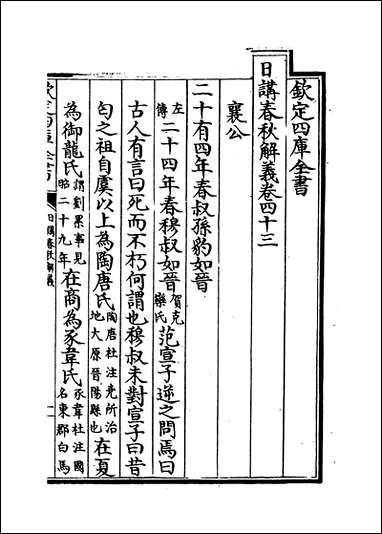 欽定四庫全書
日講春秋解義卷四十三
襄公
二十有四年春叔孫豹如晉
左傳二十四年春穆叔如晉賀克欒氏范宣子逆之問焉曰
古人有言曰死而不朽何謂也穆叔未對宣子曰昔
匄之祖自虞以上為陶唐氏陶唐杜注堯所治地大原晉陽縣也在夏
為御龍氏謂劉累事見昭二十九年在商為豕韋氏豕韋杜注國名東郡白馬
日講春秋解義